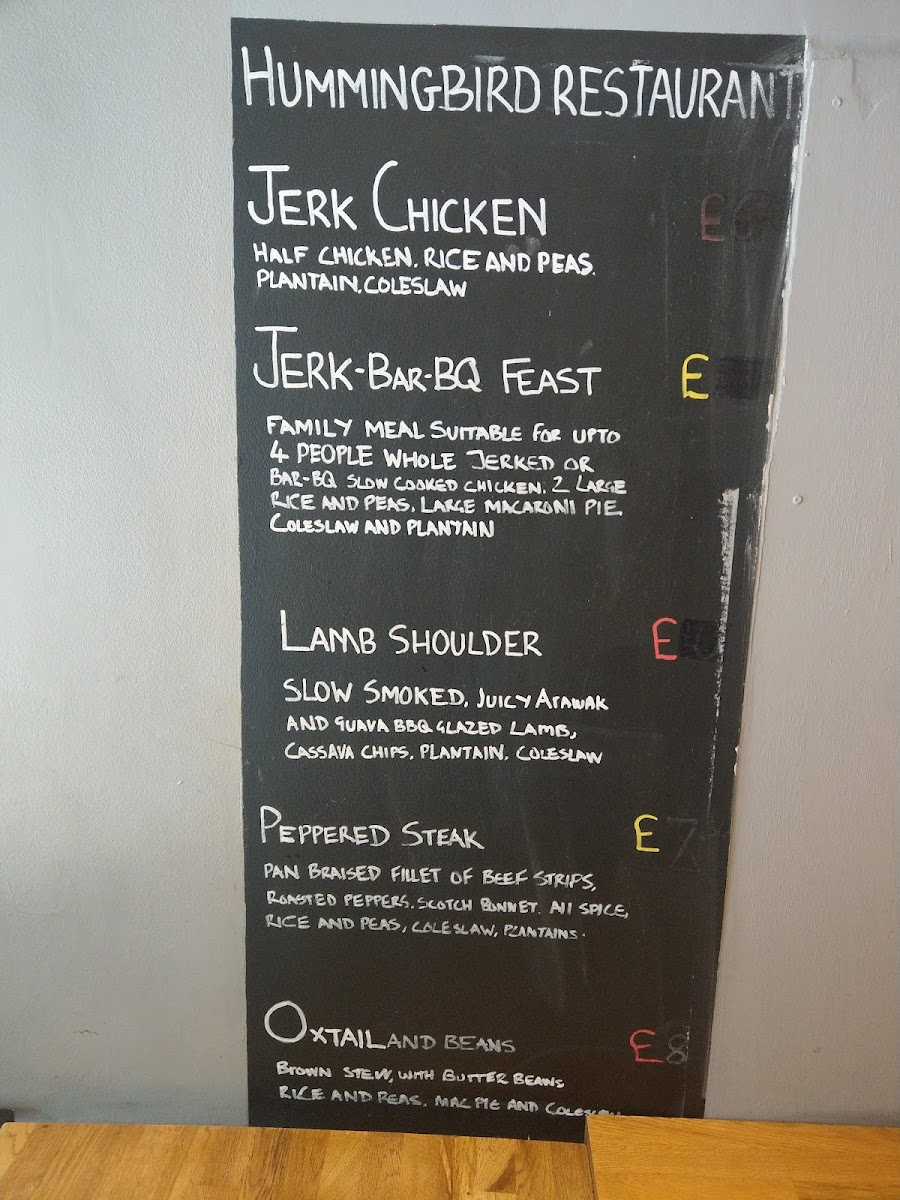 HUMMINGBIRD RESTAURANT
JERK CHICKEN £
HALF CHICKEN. RICE AND PEAS.
PLANTAIN. COLESLAW
JERK-BAR-BQ FEAST £
FAMILY MEAL SUITABLE FOR UPTO
4 PEOPLE WHOLE JERKED OR
BAR-BQ SLOW COOKED CHICKEN. 2 LARGE
RICE AND PEAS. LARGE MACARONI PIE
COLESLAW AND PLANTAIN
LAMB SHOULDER £
SLOW SMOKED, JUICY ARAWAK
AND GUAVA BBQ GLAZED LAMB,
CASSAVA CHIPS, PLANTAIN. COLESLAW
PEPPERED STEAK £7
PAN BRAISED FILLET OF BEEF STRIPS,
ROASTED PEPPERS. SCOTCH BONNET. All SPICE,
RICE AND PEAS, COLESLAW, PLANTAINS.
OXTAIL AND BEANS £8
BROWN STEW, WITH BUTTER BEANS
RICE AND PEAS. MAC PIE AND COLESLAW